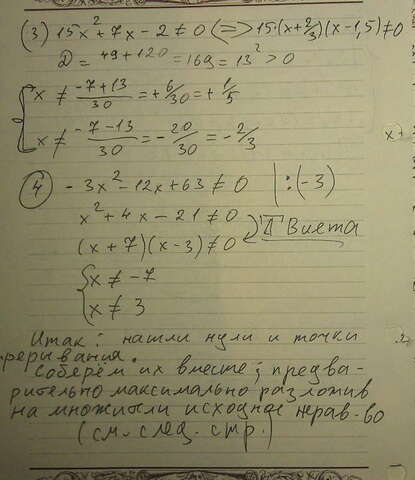 (3) 15x² + 7x - 2 ≠ 0 (=> 15·(x+2/3)(x-1,5) ≠ 0
D = 49+120 = 169 = 13² > 0
x ≠ (-7+13)/30 = +6/30 = +1/5
x ≠ (-7-13)/30 = -20/30 = -2/3
x+
(4) -3x² - 12x + 63 ≠ 0 | :(-3)
x² + 4x - 21 ≠ 0
Т Виета
(x+7)(x-3) ≠ 0
x ≠ -7
x ≠ 3
Итак: нашли нули и точки
рерывания.
Соберём их вместе; предва-
рительно максимально разложив
на множители исходное нерав-во
(см. след. стр.)